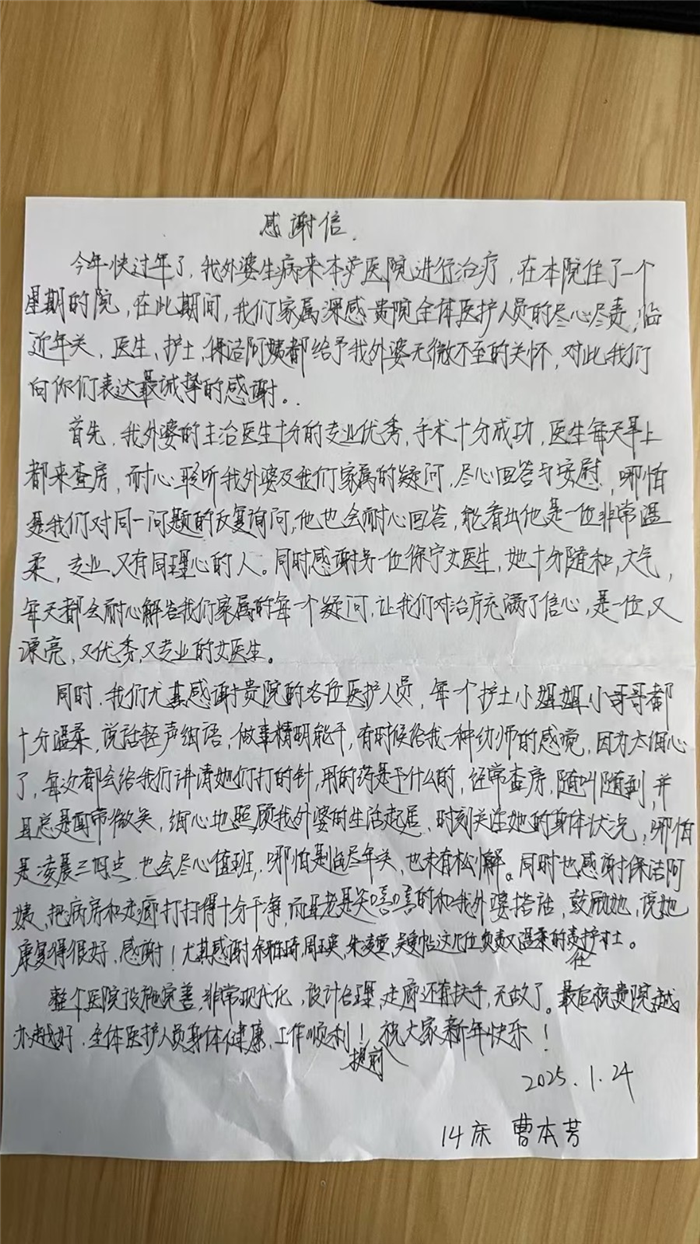 感谢信.
今年快过年了，我外婆生病来本沪医院进行治疗，在本院住了一个
星期的院，在此期间，我们家属深感贵院全体医护人员的尽心尽责，临
近年关，医生，护士，保洁阿姨都给予我外婆无微不至的关怀，对此我们
向你们表达最诚挚的感谢。
首先，我外婆的主治医生十分的专业优秀，手术十分成功，医生每天早上
都来查房，耐心聆听我外婆及我们家属的疑问，尽心回答与安慰，哪怕
是我们对同一问题的反复询问，他也会耐心回答，能看出他是一位非常温
柔，专业，又有同理心的人。同时感谢另一位徐宁文医生，她十分随和，大气，
每天都会耐心解答我们家属的每个疑问，让我们对治疗充满了信心，是一位，又
漂亮，又优秀，又专业的女医生。
同时，我们尤其感谢贵院的各位医护人员，每个护士小姐姐小哥哥都
十分温柔，说话轻声细语，做事精明能干，有时候给我一种幼师的感觉，因为太细心
了，每次都会给我们讲清她们打的针，用的药是干什么的，经常查房，随叫随到，并
且总是面带微笑，细心地照顾我外婆的生活起居，时刻关注她的身体状况，哪怕
是凌晨三四点，也会尽心值班，哪怕是临尽年关，也未有松懈。同时也感谢保洁阿
姨，把病房和走廊打扫得十分干净，而且老是笑嘻嘻的和我外婆搭话，鼓励她，说她
康复得很好，感谢！尤其感谢 这几位负责又温柔的责任护士。
整个医院设施完善，非常现代化，设计合理，走廊还有扶手，无敌了。最后祝贵院越
办越好，全体医护人员身体健康，工作顺利！提前祝大家新年快乐！
2025.1.24
14床 曹本芳